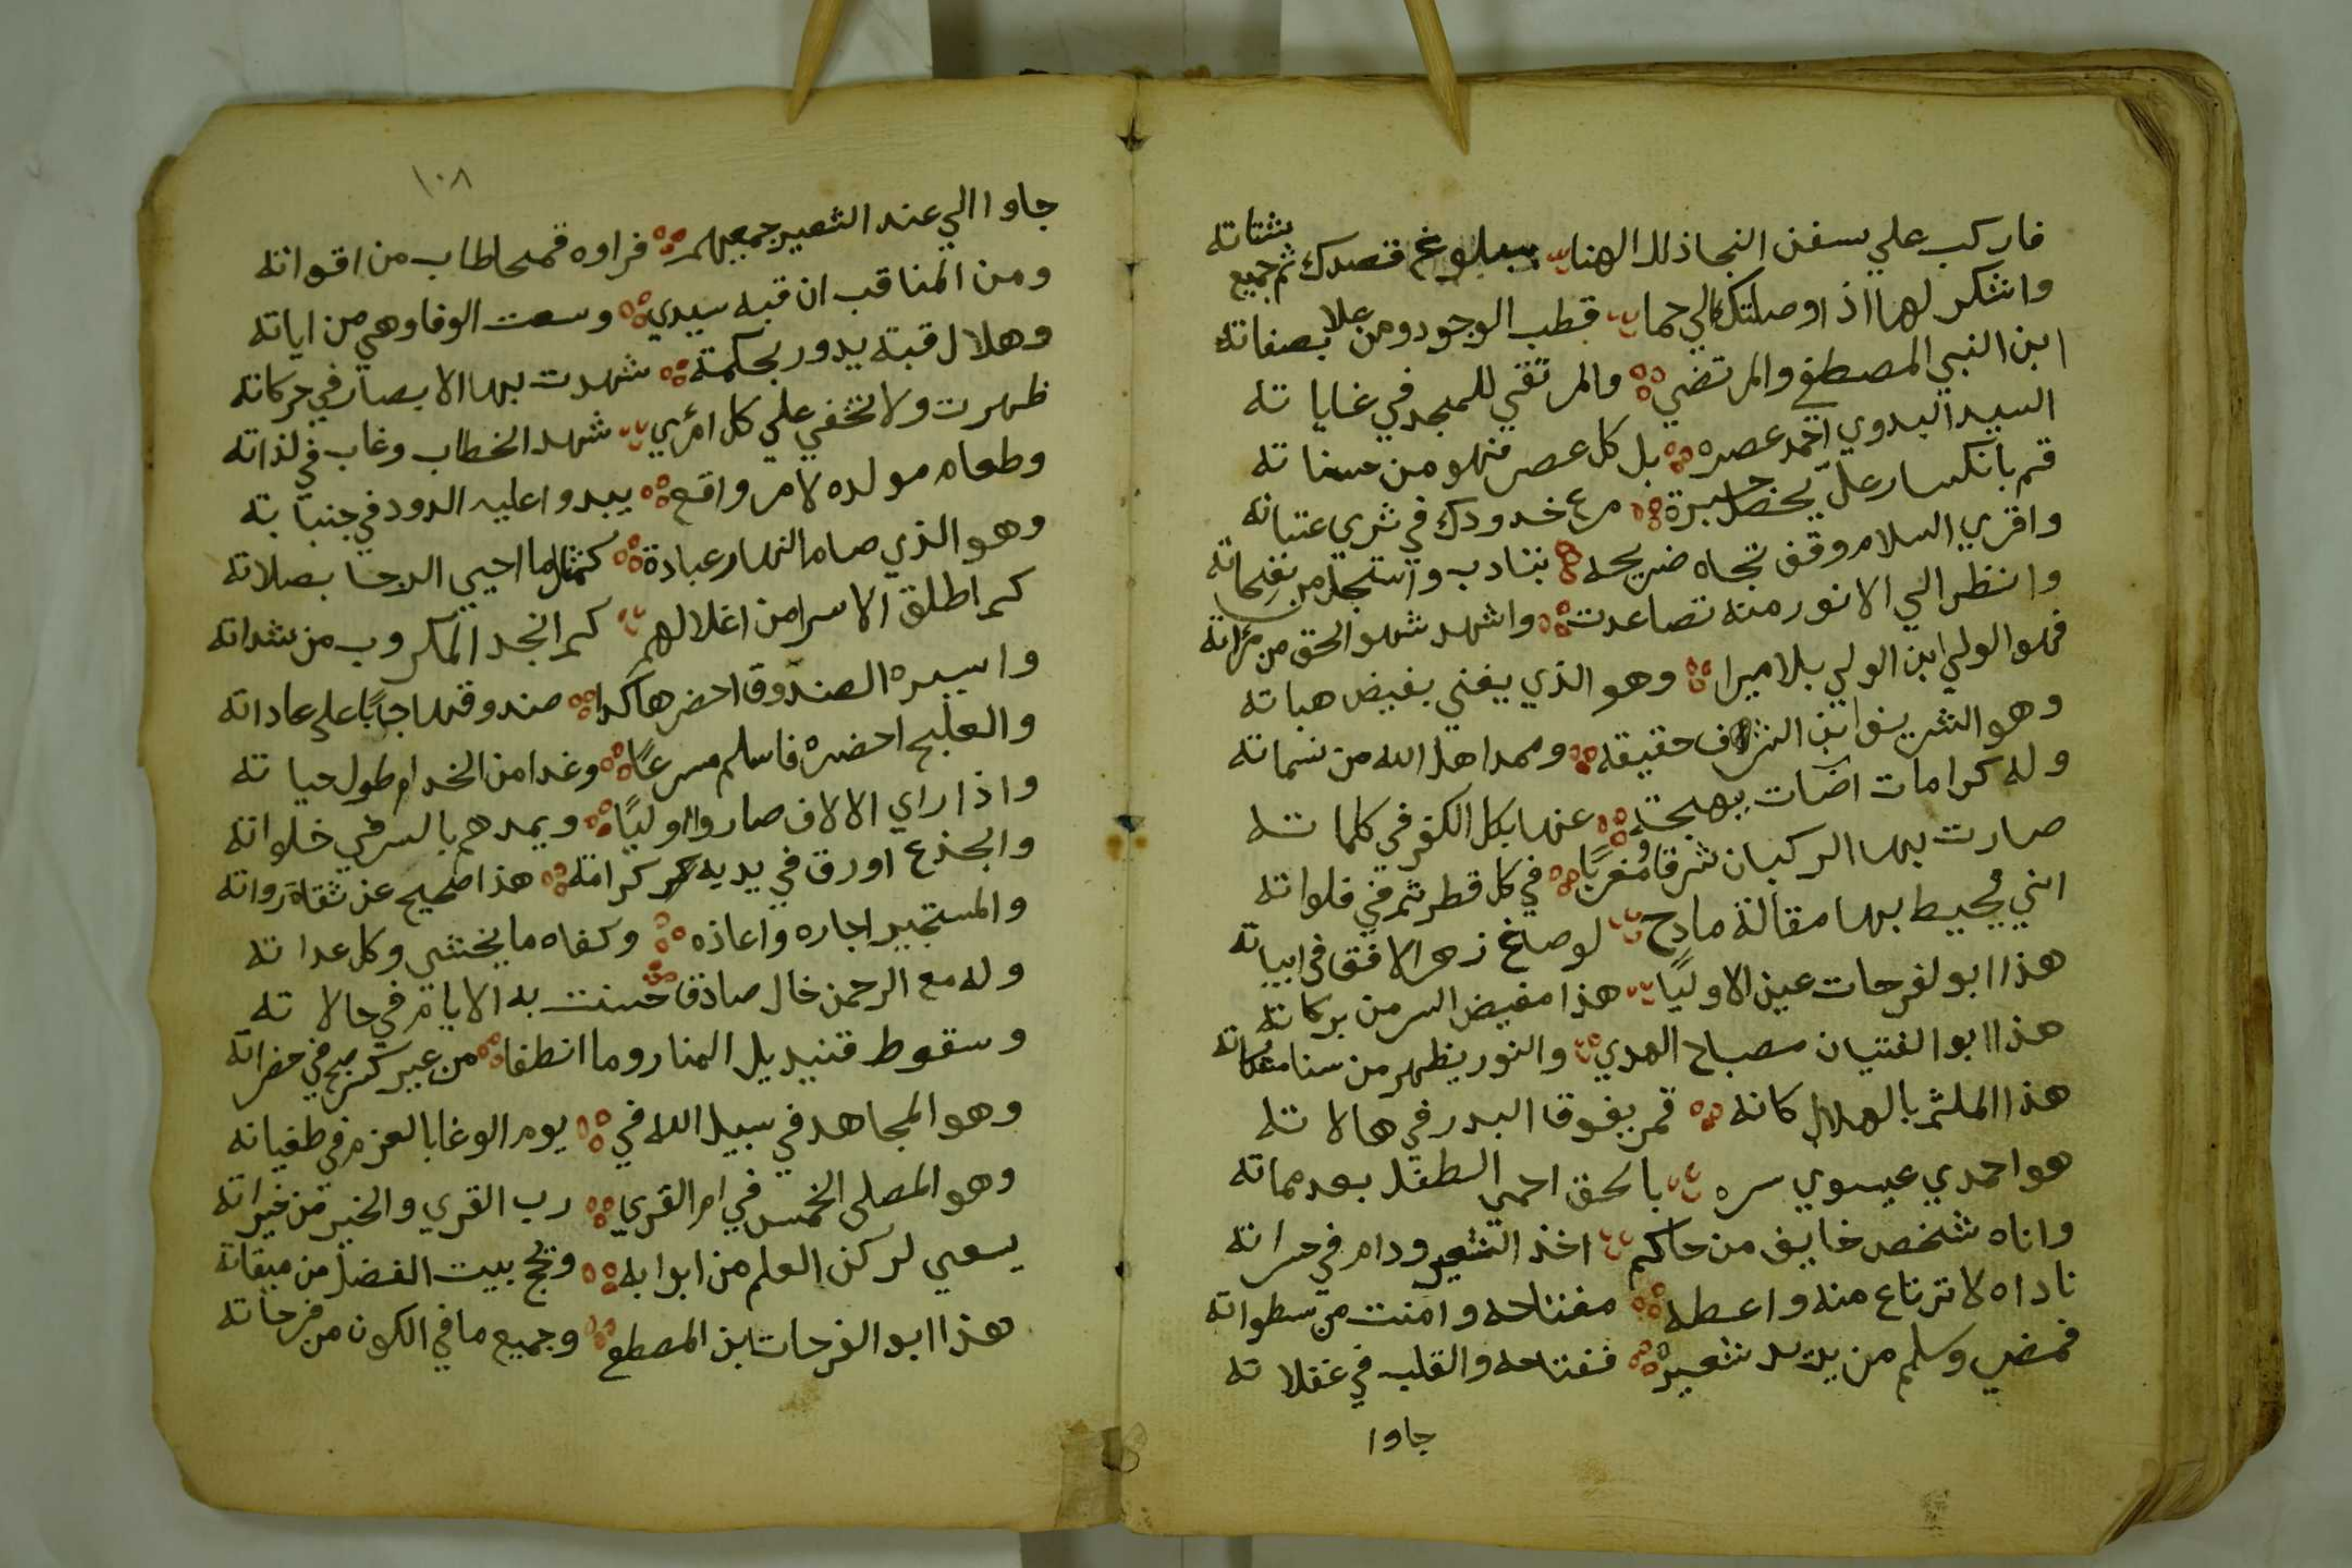 فاركب علي سفن النجا ذلك الهنا ببلوغ قصدك ثم جميع شتاته
واشكر لها اذ اوصلتك الي حما قطب الوجود ومن علا بصفاته
ابن النبي المصطفي والمرتضي والمرتقي للمجد في غاياته
السيد البدوي احمد عصره بل كل عصر فهو من حسناته
قم بانكسار علي حضيرة مرغ خدودك في ثري عتباته
واقري السلام وقف تجاه ضريحه بتادب واستجل من نفحاته
وانظر الي الانور منه تصاعدت واشهد شهو الحق من مراته
فهو الولي ابن الولي بلا ميرا وهو الذي يغني بفيض هباته
وهو الشريف ابن الشراف حقيقه وممدا هل الله من نسماته
وله كرامات اضات بهجة عنها بكل الكفر في كلماته
صارت بها الركبان شرقا ومغربا في كل قطر ثم في فلواته
اني محيط بها مقالة مادح لو صاغ زهر الافق في ابياته
هذا ابو لفرحات عين الاوليا هذا مفيض السر من بركاته
هذا ابو الفتيان مصباح الهدي والنور يظهر من سنا
هذا الملثم بالهلال كانه قمر يفوقا البدر في هالاته
هو احمدي عيسوي سره بالحق احيي الطفل بعد مماته
واتاه شخص خايف من حاكم اخذ الشعير ودام في حسراته
ناداه لا ترتاع منه واعطه مفتاحه وامنت من سطواته
فمضي وسلم من يريد شعيره ففتاحه والقلب في غفلاته
جاوا
١٠٨
جاوا الي عند الشعير جميعهم فراوه قمحا طاب من اقواته
ومن المناقب ان قبه سيدي وسعت الوفا وهي من اياته
وهلال قبته يدور بحكمته شهدت بها الابصار في حركاته
ظهرت ولا تخفي علي كل امرئي شهد الخطاب وغاب في لذاته
وطعام مولده لامر واقع يبدوا عليه الدود في جنباته
وهو الذي صام النهار عبادة كمثل ما احيي الدجا بصلاته
كم اطلق الاسرا من اغلالهم كم انجد المكروب من شداته
واسيره الصندوق احضر هاكدا صندوقها جاً با على عاداته
والعلج احضره فاسلم مسرعاً وغدا من الخدام طول حياته
واذا راي الالاف صاروا اوليًا ويمدهم بالسر في خلواته
والجذع اورق في يديه كرامة هذا صحيح عن ثقاة رواته
والمستجير اجاره واعاذه وكفاه ما يخشي وكل عداته
وله مع الرحمن خال صادق حسنت به الايام في حالاته
وسقوط قنيديل المنار وما انطفا من غير كسر صح في حضراته
وهو المجاهد في سبيل الله في يوم الوغا بالعزم في طغيانه
وهو المصلي الخمس في ام القري رب القري والخير من خيراته
يسعي لركن العلم من ابوابه وتحج بيت الفضل من ميقاته
هذا ابو الفرحات ابن المصطفي وجميع ما في الكون من فرحاته